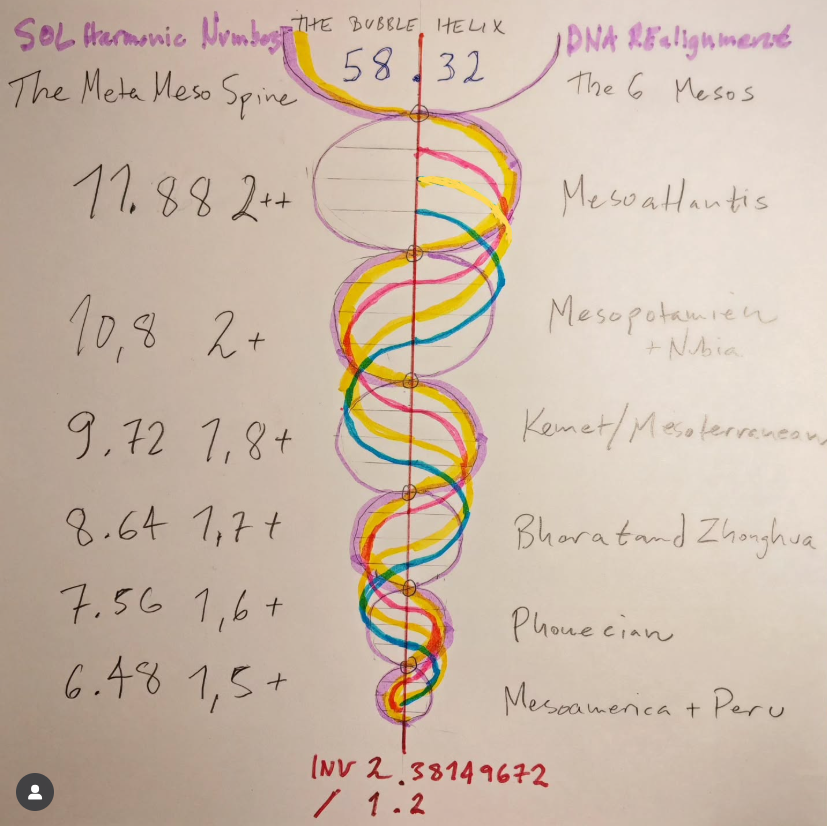 THE BUBBLE HELIX
SOL Harmonic Numbers
DNA REalignment
58.32
The Meta Meso Spine
The 6 Mesos
11.88 2++
Mesoatlantis
10,8 2+
Mesopotamien
+ Nubia
9.72 1,8+
Kemet/Mesoterranean
8.64 1,7+
Bharat and Zhonghua
7.56 1,6+
Phonecian
6.48 1,5+
Mesoamerica + Peru
INV 2.38149672
/ 1.2